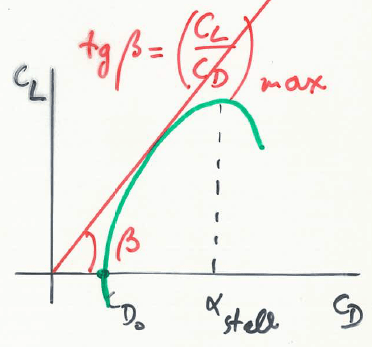 tg β = (C_L / C_D) max
C_L
β
C_D₀
α stall
C_D